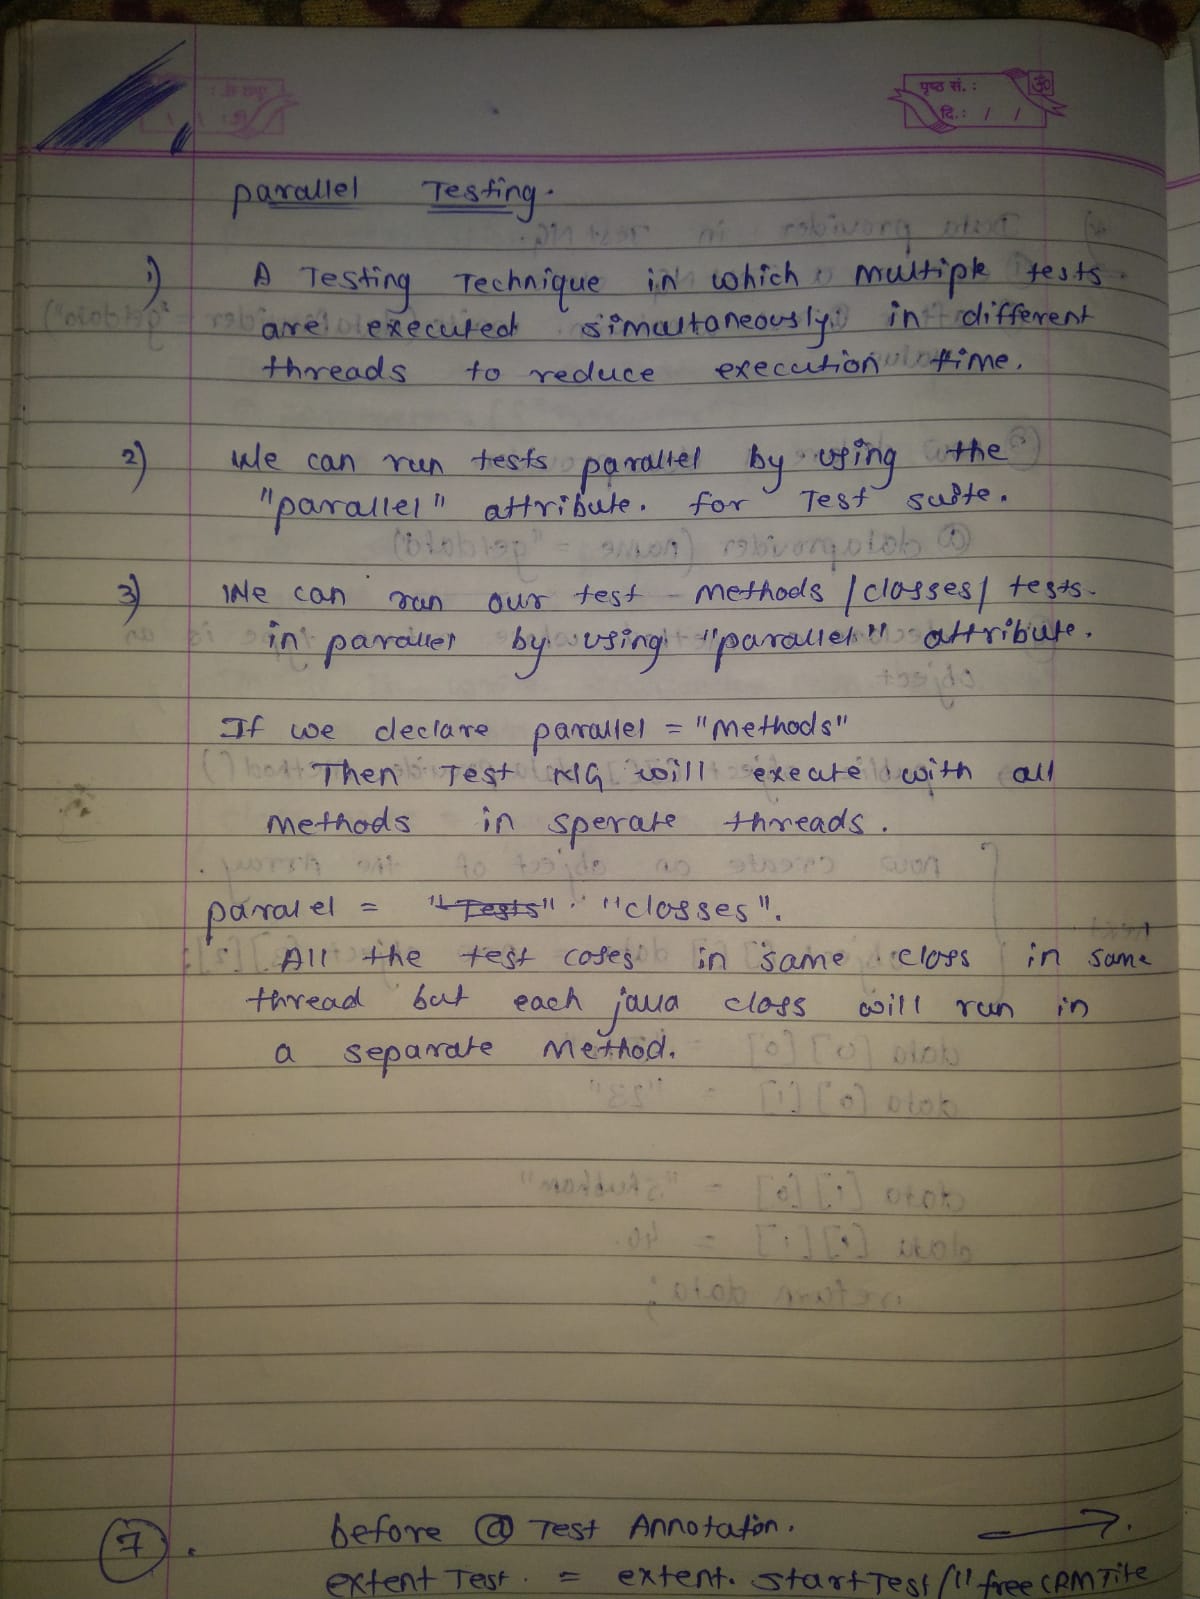 पृष्ठ सं. :
दि.: / /
parallel Testing.
1) A Testing Technique in which multiple tests
are executed simultaneously in different
threads to reduce execution time.
2) We can run tests parallel by using the
"parallel" attribute. for Test suite.
3) We can run our test methods / classes / tests
in parallel by using "parallel" attribute.
If we declare parallel = "Methods"
Then Test NG will execute with all
Methods in sperate threads.
paralel = "Tests" "classes".
All the test cases in same class in same
thread but each java class will run in
a separate Method.
7. before @ Test Annotation.
extent Test. = extent. startTest ("freeCRMTitle